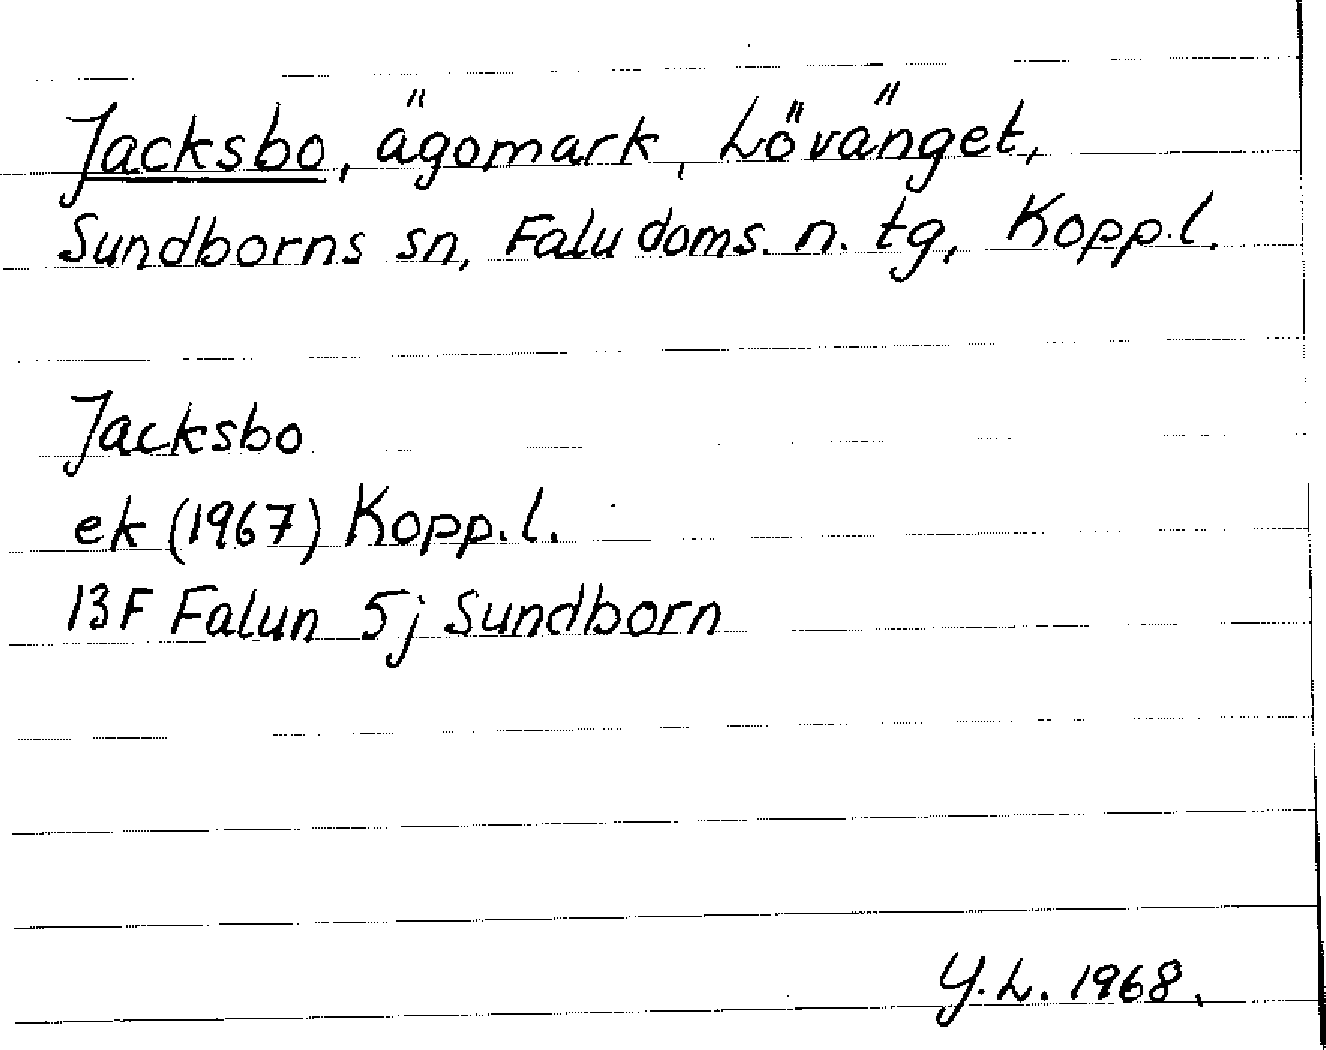 Jacksbo, ägomark, Lövänget,
Sundborns sn, Falu doms. n. tg, Kopp.l.
Jacksbo
ek (1967) Kopp.l.
13F Falun 5j Sundborn
Y.L. 1968.